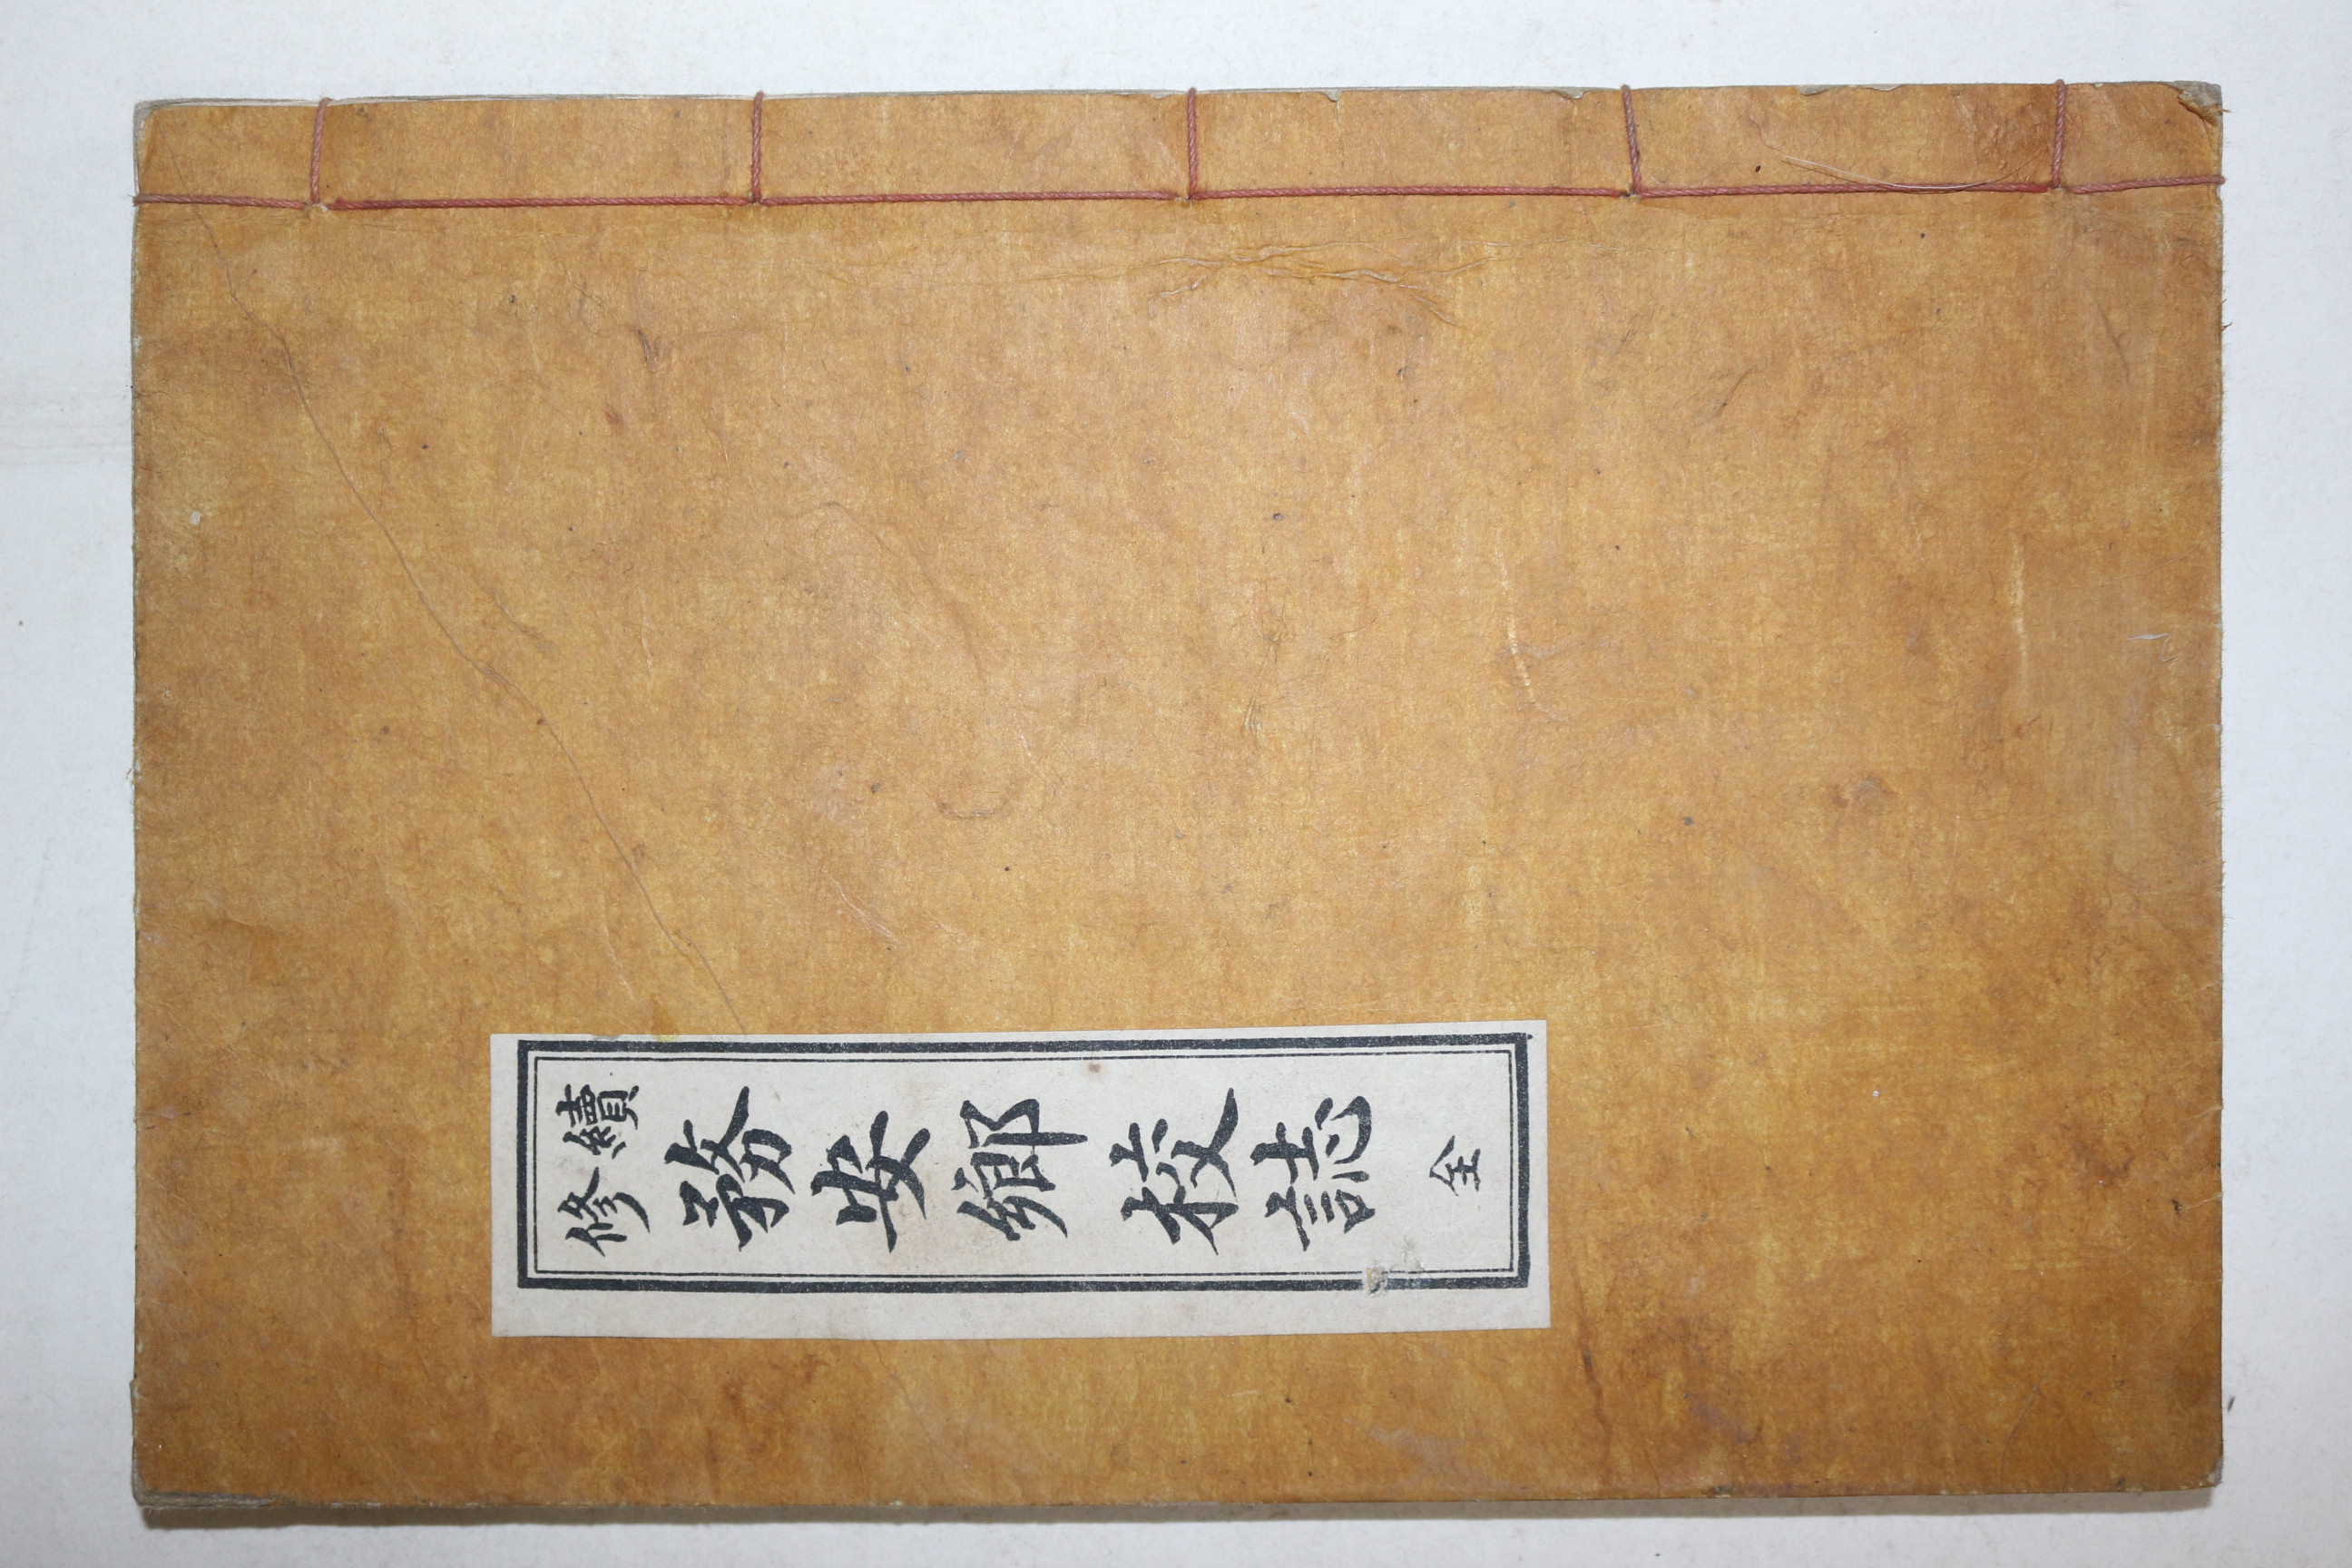 續修
務安鄕校誌
全